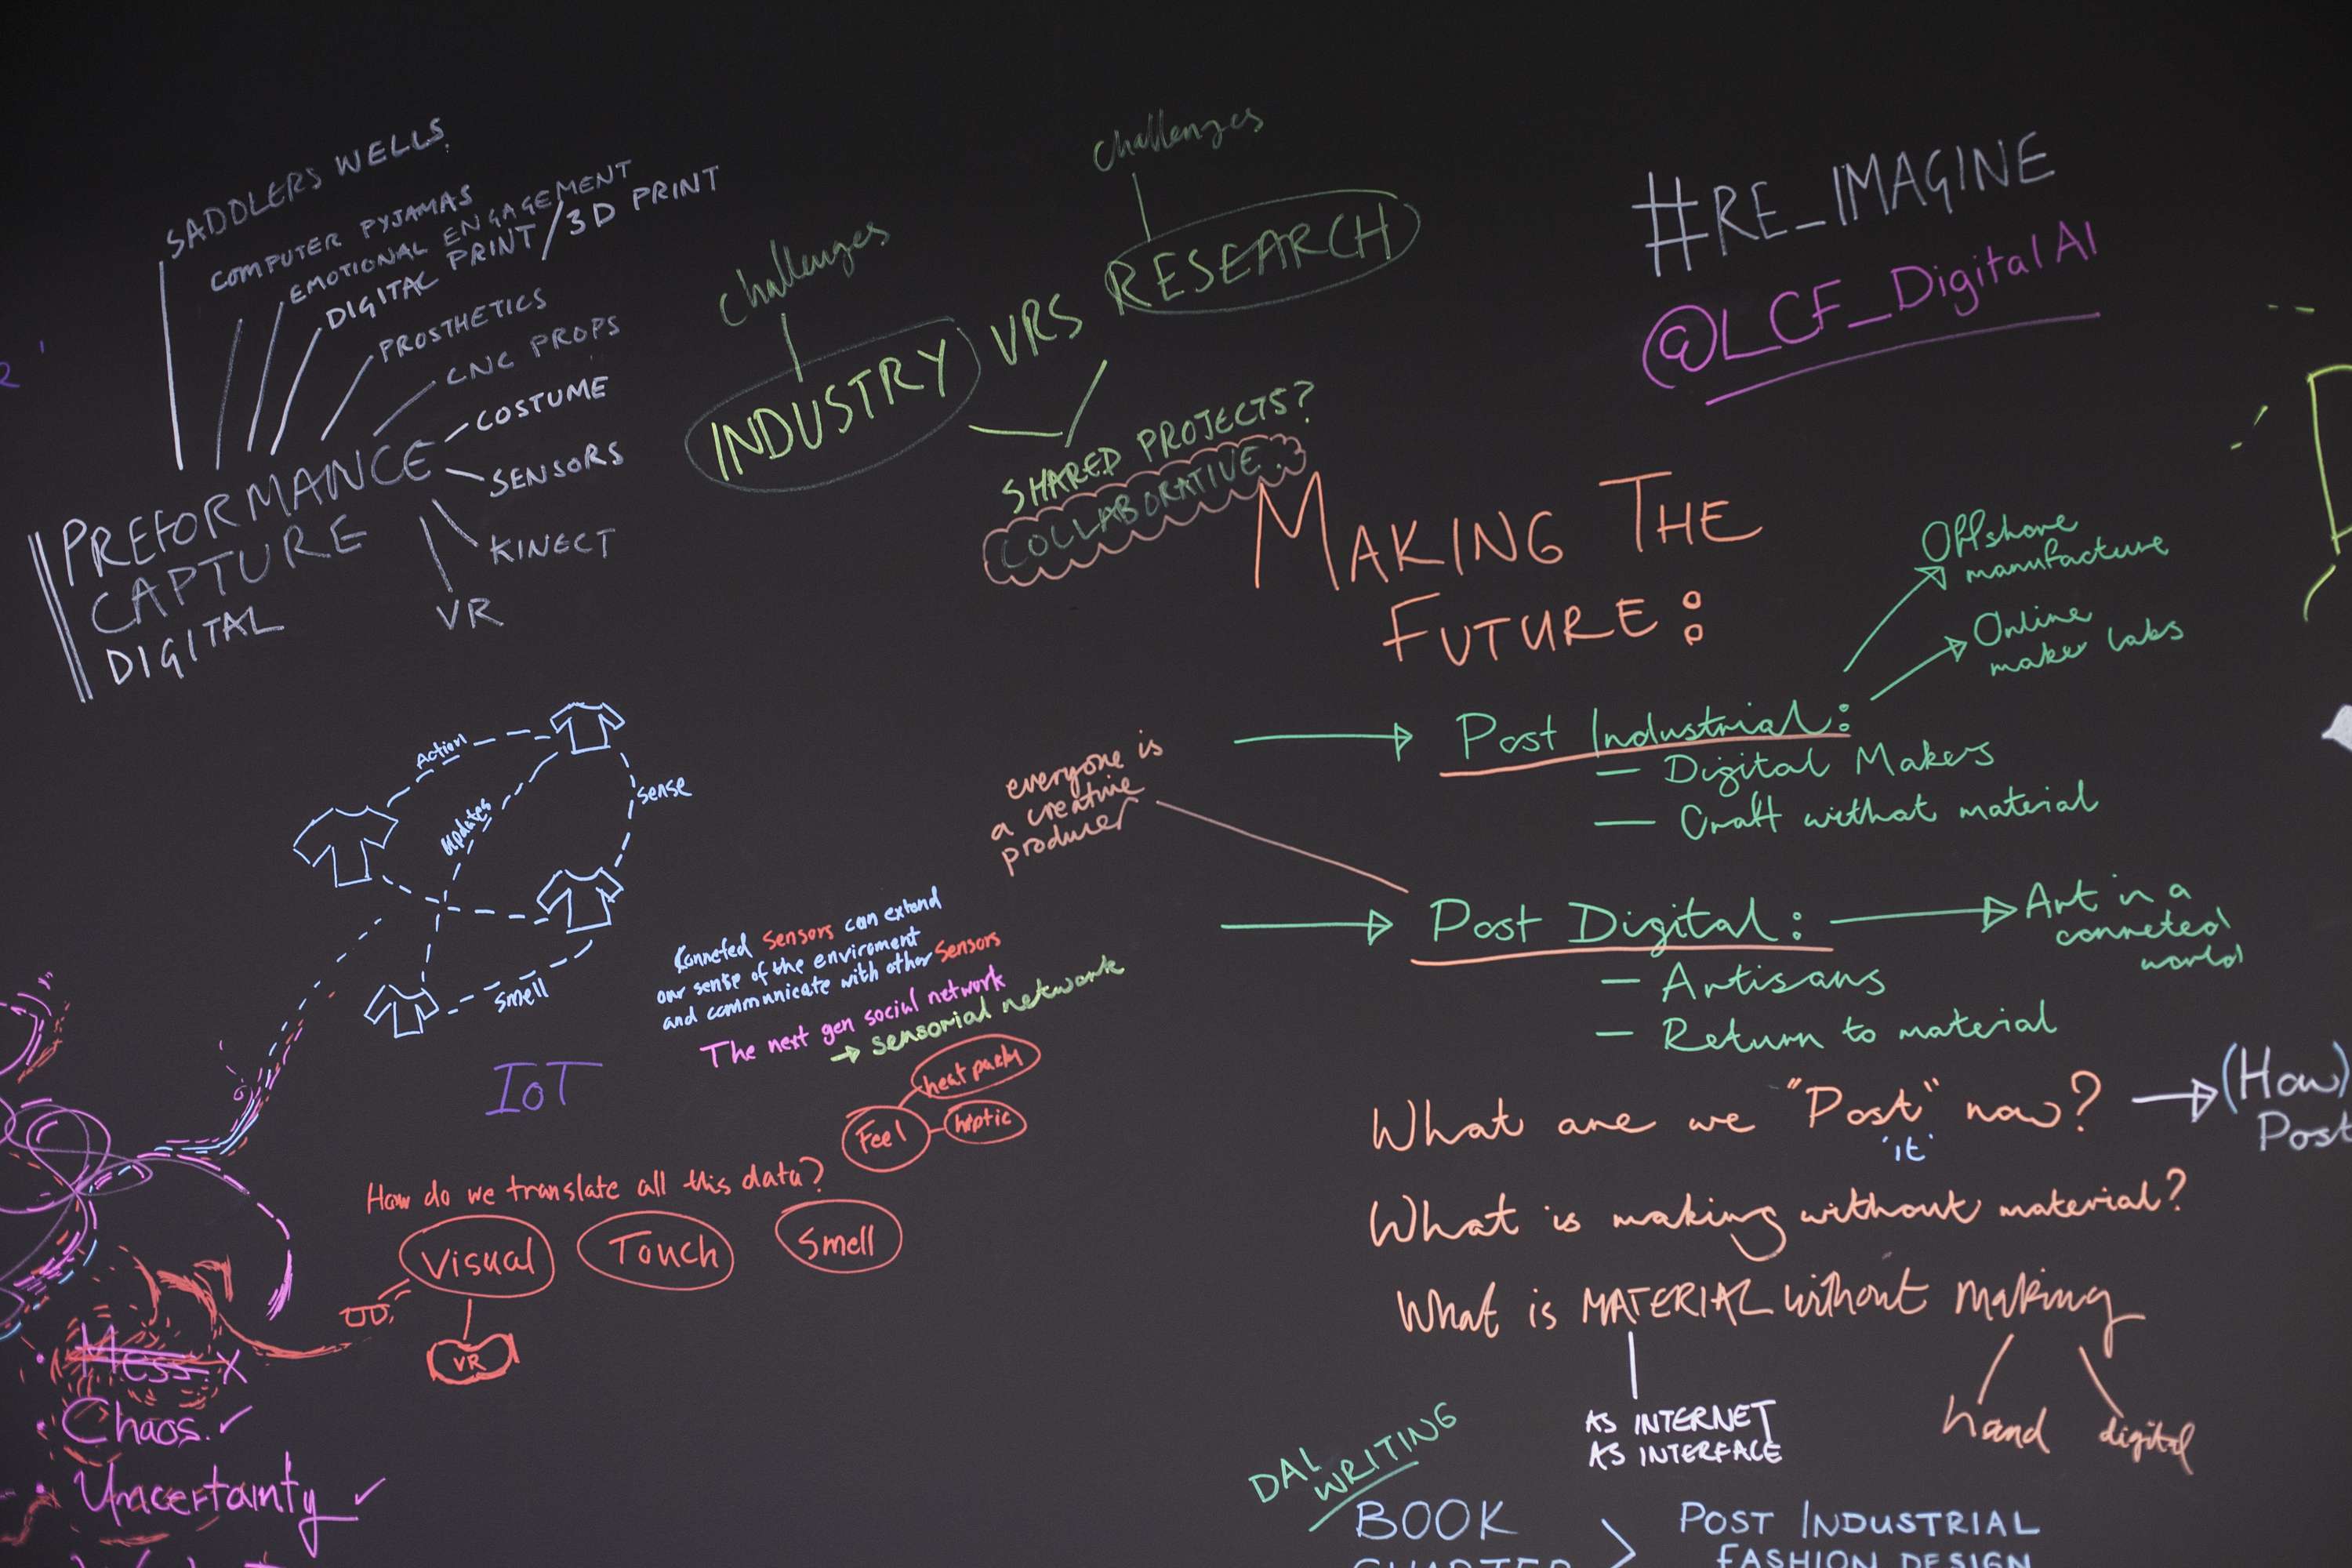 SADDLERS WELLS.
COMPUTER PYJAMAS
EMOTIONAL ENGAGEMENT
DIGITAL PRINT/3D PRINT
PROSTHETICS
CNC PROPS
COSTUME
SENSORS
KINECT
VR
PREFORMANCE
CAPTURE
DIGITAL
challenges
challenges
INDUSTRY VRS RESEARCH
SHARED PROJECTS?
COLLABORATIVE.
#RE_IMAGINE
@LCF_DigitalAI
MAKING THE
FUTURE:
Offshore
manufacture
Online
maker labs
Post Industrial:
— Digital Makers
— Craft without material
everyone is
a creative
producer
Post Digital:
— Artisans
— Return to material
Art in a
conneted
world
What are we "Post" now?
'it'
(How)
Post
What is making without material?
What is MATERIAL without making
AS INTERNET
AS INTERFACE
hand
digital
DAL
WRITING
BOOK
CHAPTER
POST INDUSTRIAL
FASHION DESIGN
Action
updates
sense
smell
Conneted sensors can extend
our sense of the enviroment
and communicate with other sensors
The next gen social network
→ sensorial network
IoT
heat packs
Feel
haptic
How do we translate all this data?
Visual
Touch
Smell
VR
• Mess. X
• Chaos. ✓
• Uncertainty ✓